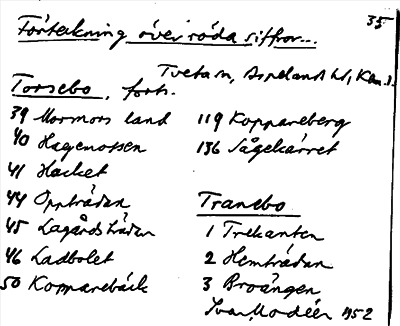 35
Förteckning över röda siffror...
Tveta sn, Aspeland hd, Klm. l.
Torsebo, forts.
39 Mormors land
40 Hagemossen
41 Hacket
44 Oppträdan
45 Lagårdsträdan
46 Ladbolet
50 Kopparebäck
119 Koppareberg
136 Sågekärret
Tranebo
1 Trekanten
2 Hemträdan
3 Broängen
Ivar Modéer 1952